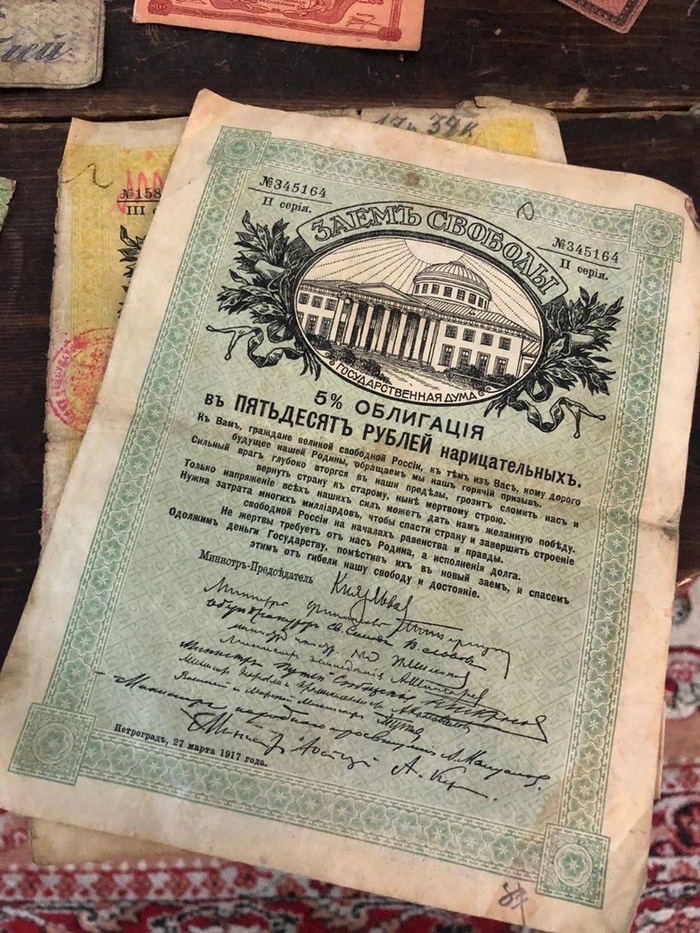 лей
17р 34к
№158
III с
№345164
II серія.
ЗАЕМЪ СВОБОДЫ
№345164
II серія.
ГОСУДАРСТВЕННАЯ ДУМА
5% ОБЛИГАЦІЯ
въ ПЯТЬДЕСЯТЪ РУБЛЕЙ нарицательныхъ.
Къ Вамъ, граждане великой свободной Россіи, къ тѣмъ изъ Васъ, кому дорого
будущее нашей Родины, обращаемъ мы нашъ горячій призывъ.
Сильный врагъ глубоко вторгся въ наши предѣлы, грозитъ сломить насъ и
вернуть страну къ старому, нынѣ мертвому строю.
Только напряженіе всѣхъ нашихъ силъ можетъ дать намъ желанную побѣду.
Нужна затрата многихъ милліардовъ, чтобы спасти страну и завершить строеніе
свободной Россіи на началахъ равенства и правды.
Не жертвы требуетъ отъ насъ Родина, а исполненія долга.
Одолжимъ деньги Государству, помѣстивъ ихъ въ новый заемъ, и спасемъ
этимъ отъ гибели нашу свободу и достояніе.
Министръ-Предсѣдатель Кн. Львов
Министръ финансовъ
Министръ Путей Сообщенія
Военный и Морской Министръ
Министръ народнаго просвѣщенія А. Мануйлов.
Министръ Юстиціи А. Кер
Петроградъ, 27 марта 1917 года.